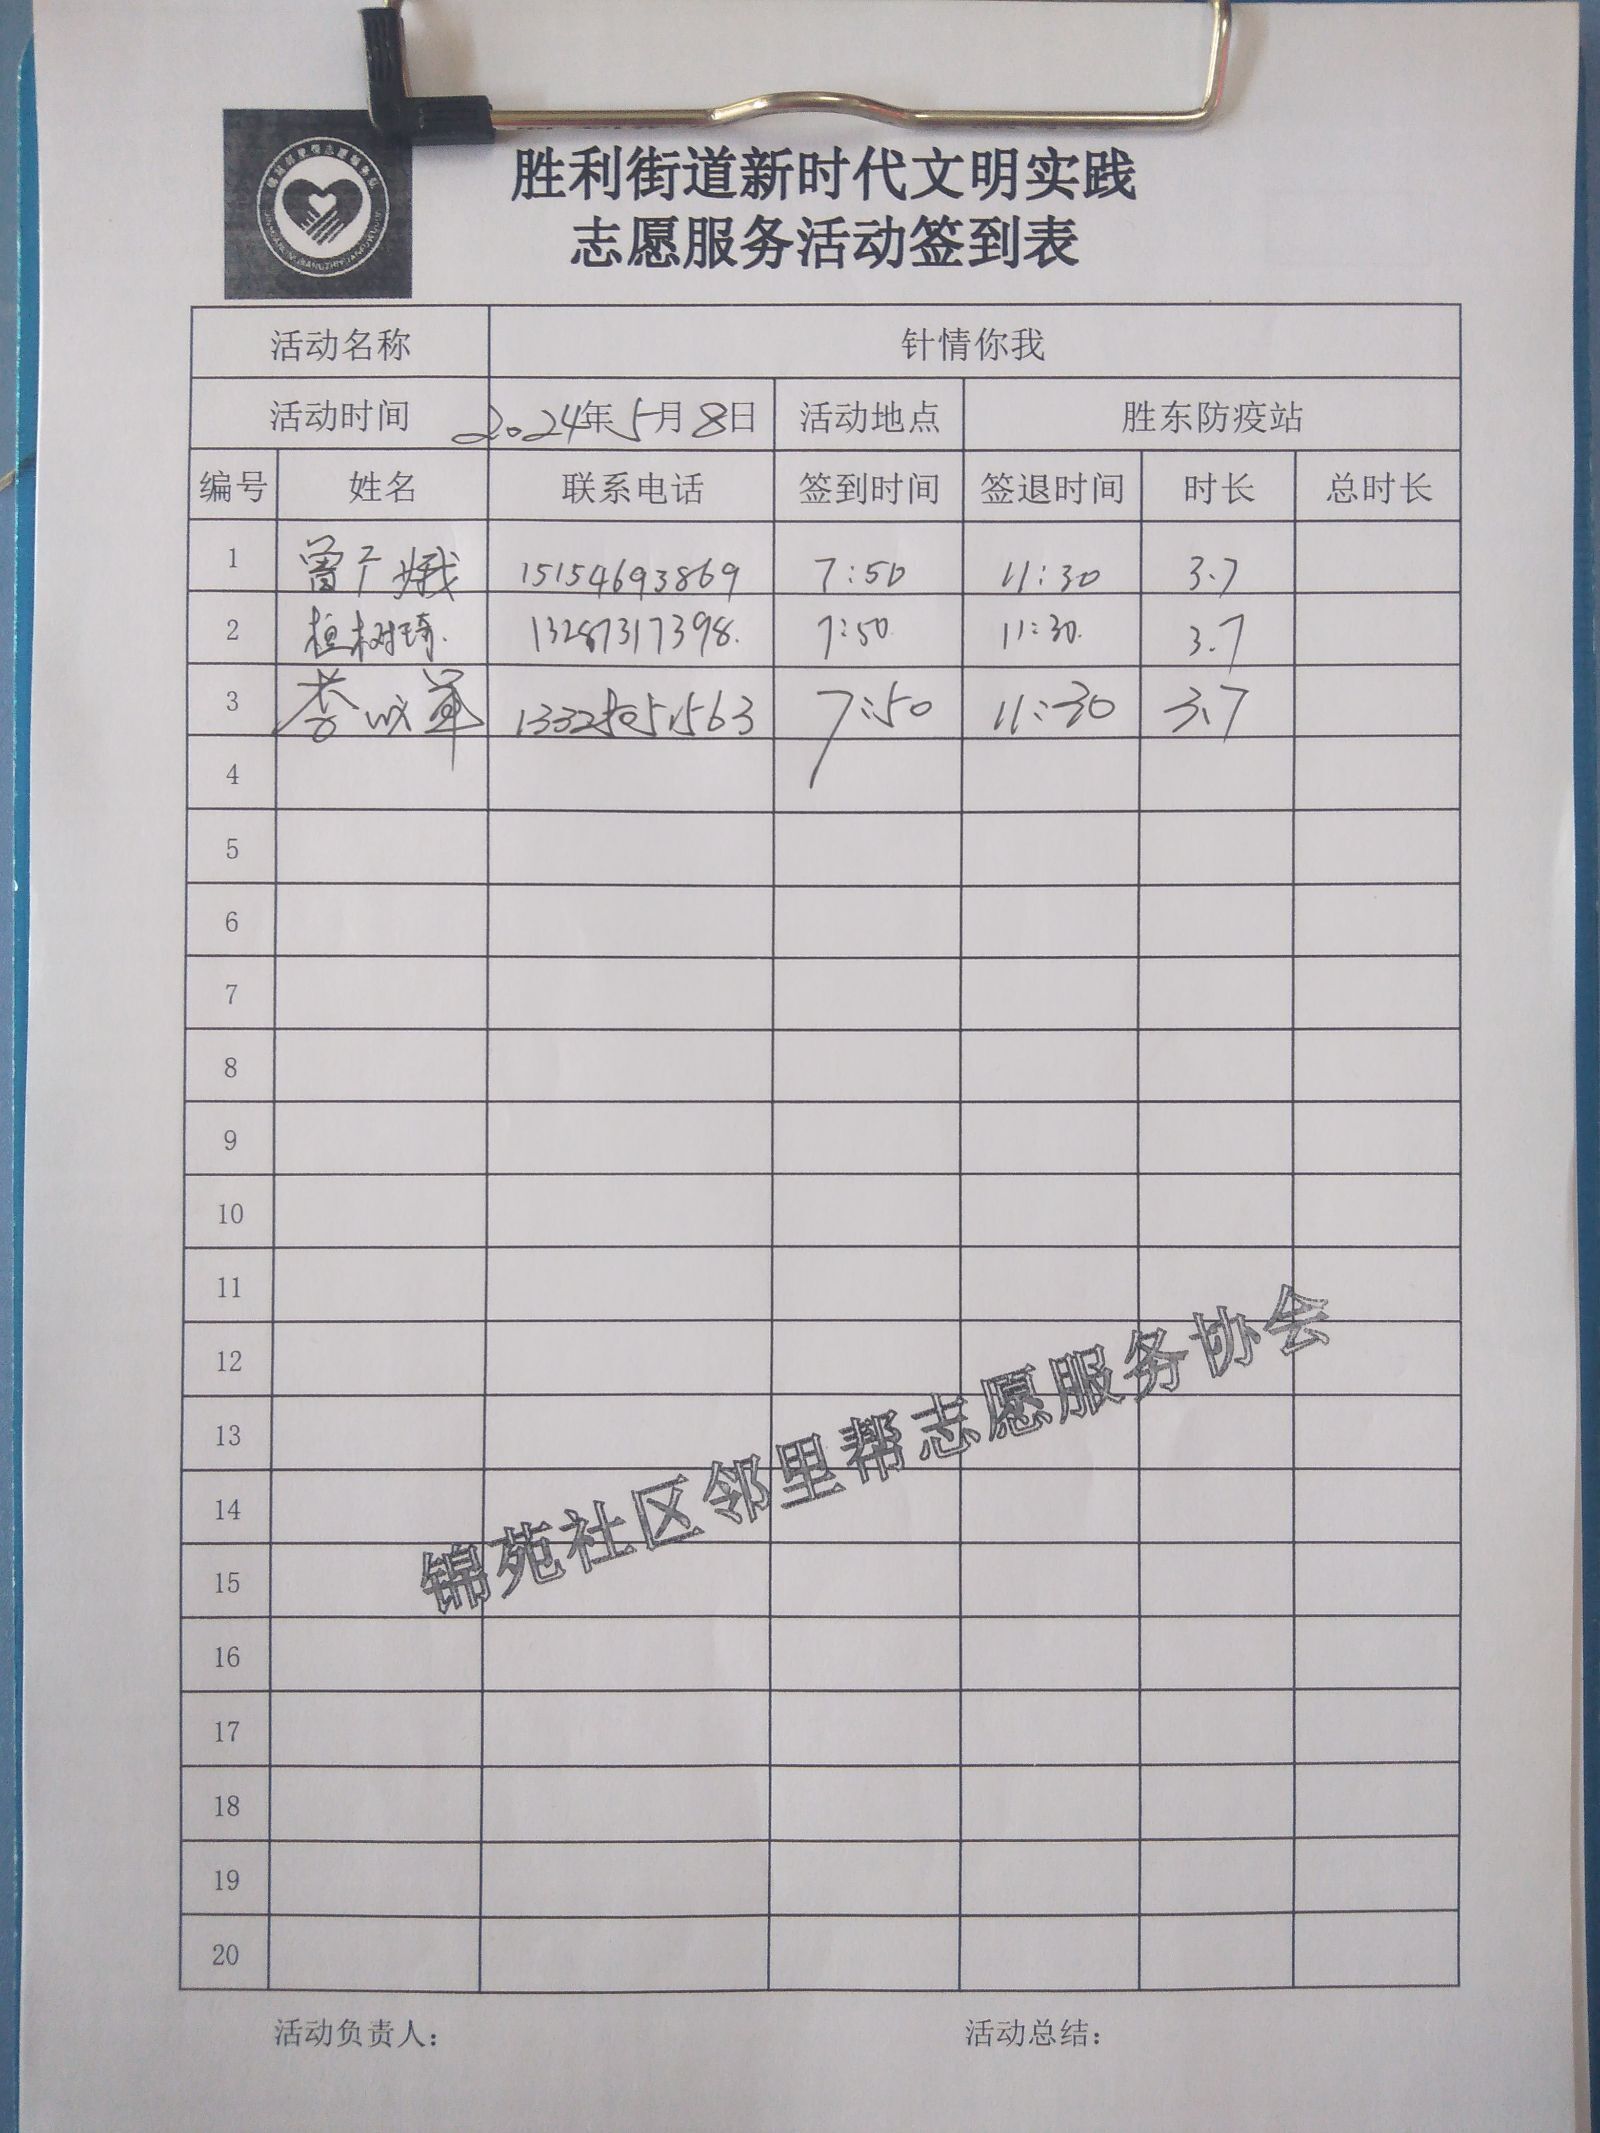 胜利街道新时代文明实践
志愿服务活动签到表
活动名称 针情你我
活动时间 2024年5月8日 活动地点 胜东防疫站
编号 姓名 联系电话 签到时间 签退时间 时长 总时长
1 曾广娥 15154693869 7:50 11:30 3.7
2 桓树琦 13287317398 7:50 11:30 3.7
3 李 7:50 11:30 3.7
4
5
6
7
8
9
10
11
12
13
14
15
16
17
18
19
20
锦苑社区邻里帮志愿服务协会
活动负责人： 活动总结：